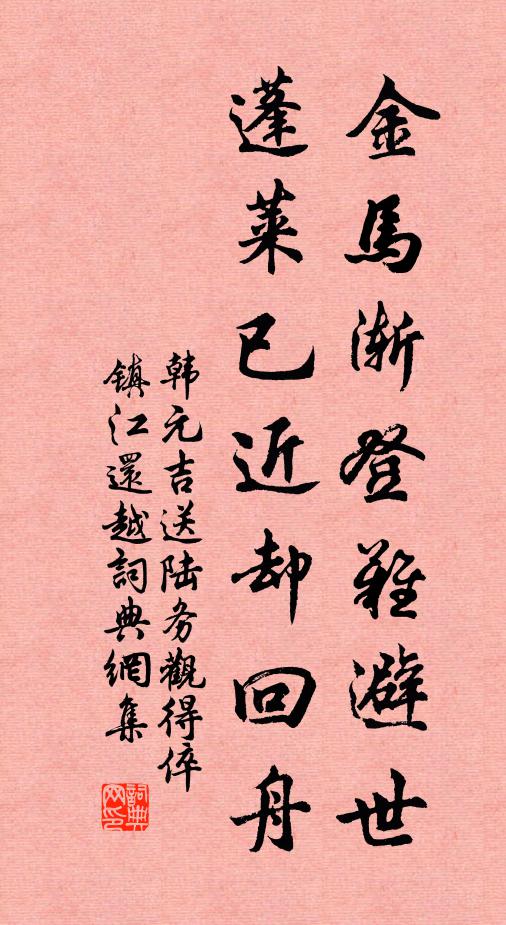 金馬渐登難避世
蓬莱已近却回舟
韩元吉送陆务觀得倅
镇江還越詞典網集
詞典网印